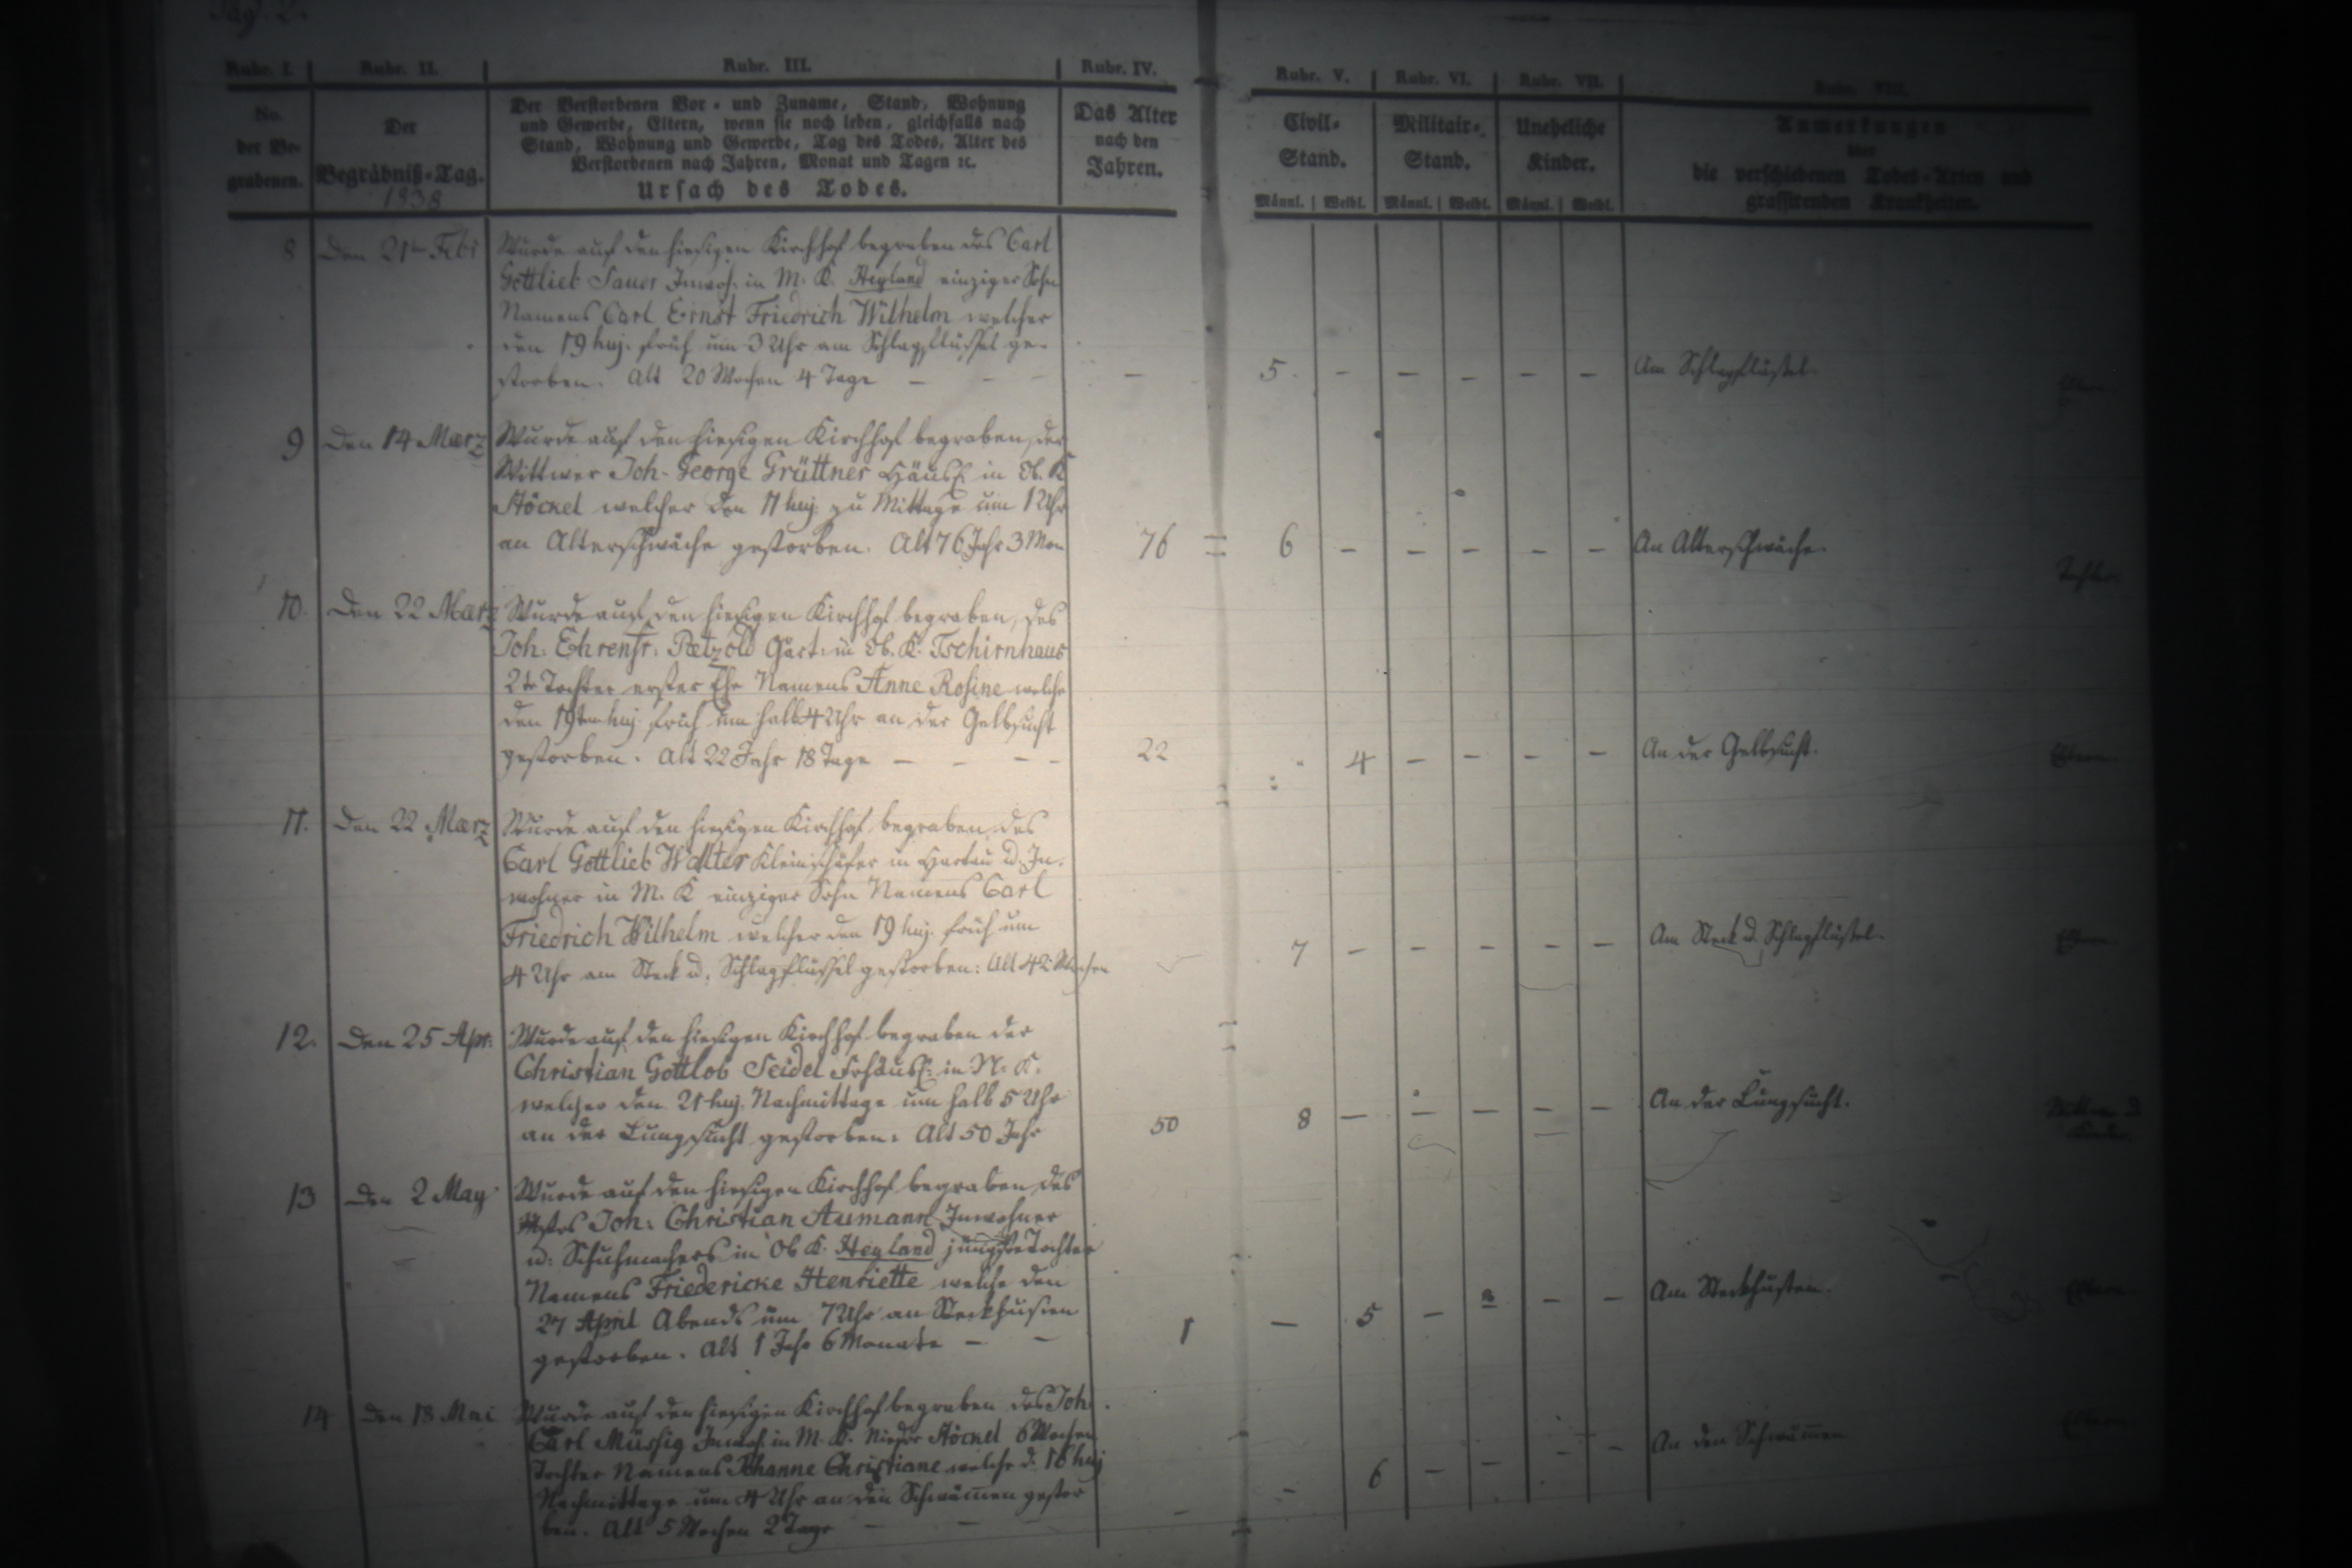 Pag. 2.
Rubr. I. Rubr. II. Rubr. III. Rubr. IV. Rubr. V. Rubr. VI. Rubr. VII. Rubr. VIII.
No. der Be- grabenen.
Der Begräbniß-Tag. 1838
Der Verstorbenen Vor- und Zuname, Stand, Wohnung
und Gewerbe, Eltern, wenn sie noch leben, gleichfalls nach
Stand, Wohnung und Gewerbe, Tag des Todes, Alter des
Verstorbenen nach Jahren, Monat und Tagen ꝛc.
Ursach des Todes.
Das Alter
nach den
Jahren.
Civil-
Stand.
Männl. Weibl.
Militair-
Stand.
Männl. Weibl.
Uneheliche
Kinder.
Männl. Weibl.
Anmerkungen
über
die verschiedenen Todes-Arten und
grassirenden Krankheiten.
8 Den 21ten Febr Wurde auf den hiesigen Kirchhof begraben des Carl
Gottlieb Sauer Inwoh: in M. K. Heyland einziger Sohn
Namens Carl Ernst Friedrich Wilhelm welcher
den 19 huj. früh um 3 Uhr am Schlagflüssel ge-
storben. Alt 20 Wochen 4 Tage – – – – 5 – – – – – Am Schlagflüssel.
9 Den 14 Maerz Wurde auf den hiesigen Kirchhof begraben, der
Wittwer Joh. George Grüttner Häusl: in Ob. K
Stöckel welcher den 11 huj. zu Mittage um 1 Uhr
an Alterschwäche gestorben. Alt 76 Jahr 3 Mon 76 6 – – – – – An Alterschwäche.
Tochter
10. Den 22 Maerz Wurde auf den hiesigen Kirchhof begraben, des
Joh: Ehrenfr: Paetzold Gärt: in Ob. K. Tschirnhaus
2te Tochter erster Ehe Namens Anne Rosine welche
den 19ten huj. früh um halb 4 Uhr an der Gelbsucht
gestorben. Alt 22 Jahr 18 Tage – – – – 22 4 – – – – An der Gelbsucht. Eltern
11. Den 22 Maerz Wurde auf den hiesigen Kirchhof begraben des
Carl Gottlieb Walter Kleinschäfer in Hartau u. In-
wohner in M. K einziger Sohn Namens Carl
Friedrich Wilhelm welcher den 19 huj. früh um
4 Uhr am Steck u. Schlagflüssel gestorben: Alt 42 Wochen 7 – – – – – Am Steck u. Schlagflüssel. Eltern
12. Den 25 Apr: Wurde auf den hiesigen Kirchhof begraben der
Christian Gottlob Seidel Frhäusl: in N. K.
welcher den 21 huj. Nachmittage um halb 5 Uhr
an der Lungsucht gestorben: Alt 50 Jahr 50 8 – – – – – An der Lungsucht.
13 Den 2 May Wurde auf den hiesigen Kirchhof begraben des
Mstrs Joh: Christian Aumann Inwohner
u: Schuhmachers in Ob K. Heyland jüngste Tochter
Namens Friedericke Henriette welche den
27 April Abends um 7 Uhr an Steckhusten
gestorben. Alt 1 Jahr 6 Monate – – 1 – 5 – – – Am Steckhusten. Eltern
14 Den 18 Mai Wurde auf den hiesigen Kirchhof begraben des Joh.
Carl Müssig Inwoh: in M. K. Nieder Stöckel 6 Wochen
Tochter Namens Johanne Christiane welche d. 16 huj
Nachmittage um 4 Uhr an den Schwämen gestor
ben. Alt 5 Wochen 2 Tage – – – – 6 – – – – An den Schwämen